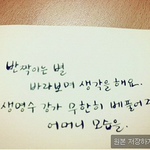 반짝이는 별
바라보며 생각을 해요.
생명수 강가 무한히 베풀어
어머니 모습을.
원본 저장하기